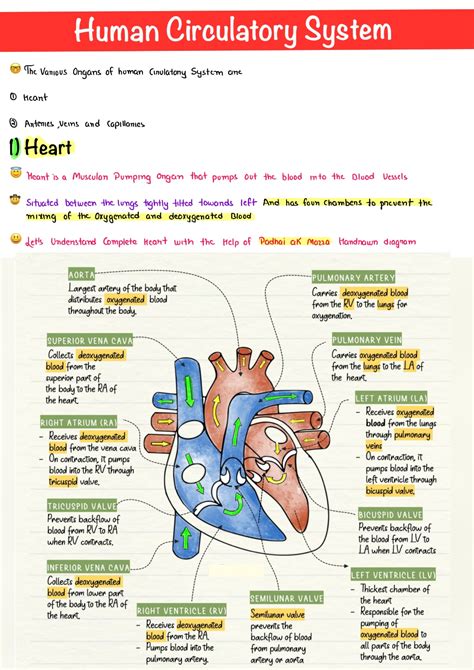 Human Circulatory System
The Various Organs of human Cirulatory System are
① Heart
② Arteries, Veins and Capillaries
1) Heart
Heart is a Muscular Pumping Organ that pumps out the blood into the Blood Vessels
Situated between the lungs tightly tilted towards left And has four Chambers to prevent the
mixing of the Oxygenated and deoxygenated Blood
Let's Understand Complete Heart with the Help of Padhai ak Mazza Handrawn diagram
AORTA
Largest artery of the body that
distributes oxygenated blood
throughout the body.
PULMONARY ARTERY
Carries deoxygenated blood
from the RV to the lungs for
oxygenation.
SUPERIOR VENA CAVA
Collects deoxygenated
blood from the
superior part of
the body to the RA of
the heart.
PULMONARY VEIN
Carries oxygenated blood
from the lungs to the LA of
the heart.
RIGHT ATRIUM (RA)
- Receives deoxygenated
blood from the vena cava
- On contraction, it pumps
blood into the RV through
tricuspid valve.
LEFT ATRIUM (LA)
- Receives oxygenated
blood from the lungs
through pulmonary
veins
- On contraction, it
pumps blood into the
left ventricle through
bicuspid valve.
TRICUSPID VALVE
Prevents backflow of
blood from RV to RA
when RV contracts.
BICUSPID VALVE
Prevents backflow of
blood from LV to
LA when LV contracts
INFERIOR VENA CAVA
Collects deoxygenated
blood from lower part
of the body to the RA of
the heart.
RIGHT VENTRICLE (RV)
- Receives deoxygenated
blood from the RA.
- Pumps blood into the
pulmonary artery.
SEMILUNAR VALVE
Semilunar valve
prevents the
backflow of blood
from pulmonary
artery or aorta
LEFT VENTRICLE (LV)
- Thickest chamber of
the heart
- Responsible for the
pumping of
oxygenated blood to
all parts of the body
through the aorta.